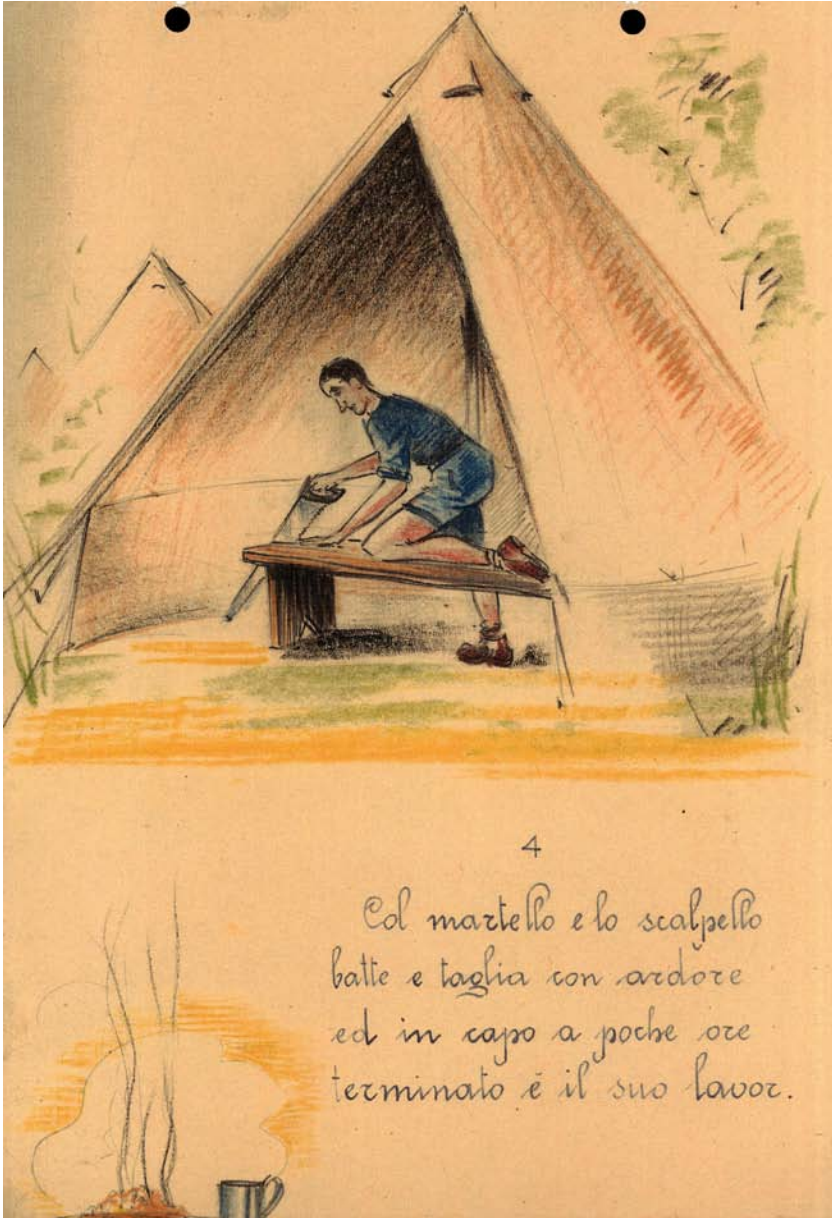 4
Col martello e lo scalpello
batte e taglia con ardore
ed in capo a poche ore
terminato è il suo lavor.